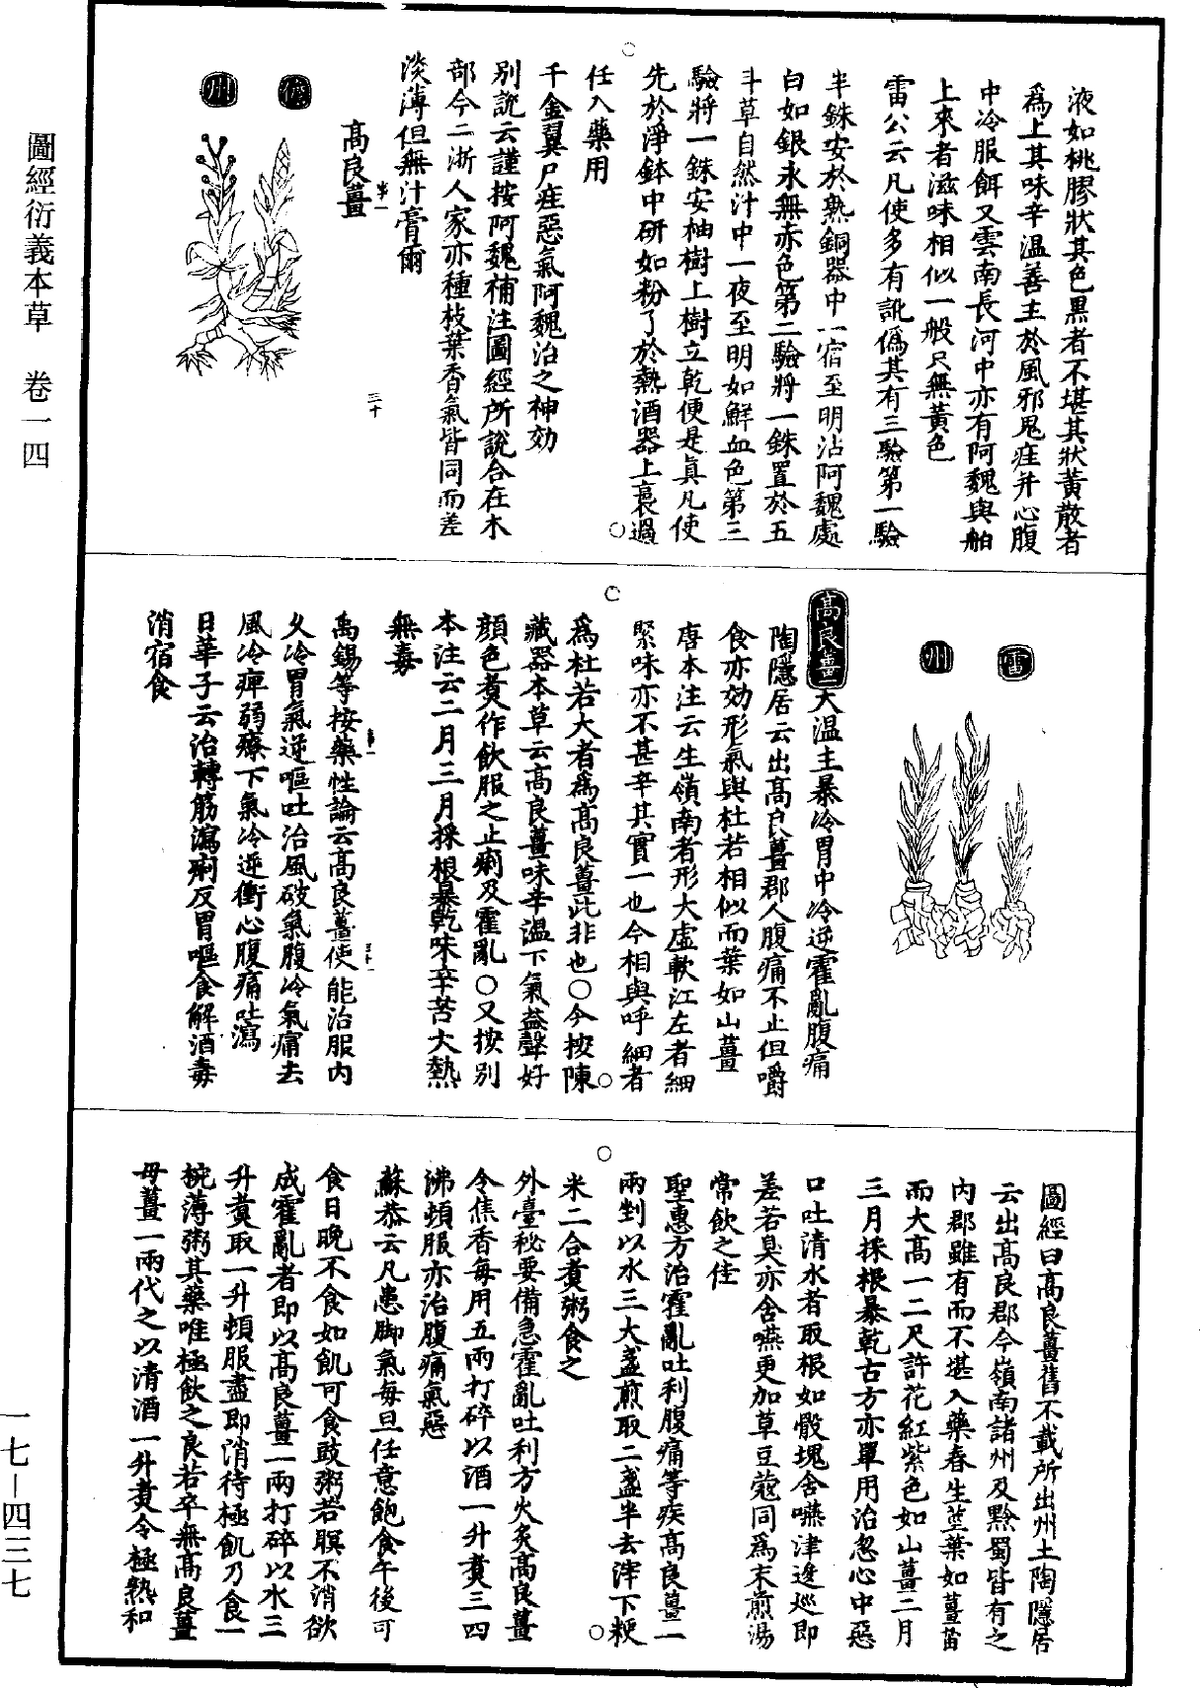 圖經衍義本草　卷一四
液如桃膠狀其色黑者不堪其狀黃散者
爲上其味辛温善主於風邪鬼疰并心腹
中冷服餌又雲南長河中亦有阿魏與舶
上來者滋味相似一般只無黃色
雷公云凡使多有訛僞其有三驗第一驗
半銖安於熟銅器中一宿至明沾阿魏處
白如銀永無赤色第二驗將一銖置於五
斗草自然汁中一夜至明如鮮血色第三
驗將一銖安柚樹上樹立乾便是眞凡使
先於淨鉢中研如粉了於熱酒器上裛過
任入藥用
千金翼尸疰惡氣阿魏治之神効
別說云謹按阿魏補注圖經所說合在木
部今二浙人家亦種枝葉香氣皆同而差
淡薄但無汁膏爾
高良薑
三十
儋
州
雷
州
高良薑大温主暴冷胃中冷逆霍亂腹痛
陶隱居云出高良薑郡人腹痛不止但嚼
食亦効形氣與杜若相似而葉如山薑
唐本注云生嶺南者形大虛軟江左者細
緊味亦不甚辛其實一也今相與呼細者
爲杜若大者爲高良薑此非也○今按陳
藏器本草云高良薑味辛温下氣益聲好
顏色煑作飲服之止痢及霍亂○又按別
本注云二月三月採根暴乾味辛苦大熱
無毒
禹錫等按藥性論云高良薑使能治服内
久冷胃氣逆嘔吐治風破氣腹冷氣痛去
風冷痺弱療下氣冷逆衝心腹痛吐瀉
日華子云治轉筋瀉痢反胃嘔食解酒毒
消宿食
圖經曰高良薑舊不載所出州土陶隱居
云出高良郡今嶺南諸州及黔蜀皆有之
内郡雖有而不堪入藥春生莖葉如薑苗
而大高一二尺許花紅紫色如山薑二月
三月採根暴乾古方亦單用治忽心中惡
口吐清水者取根如骰塊含嚥津逡巡即
差若臭亦含嚥更加草豆蔻同爲末煎湯
常飲之佳
聖惠方治霍亂吐利腹痛等疾高良薑一
兩剉以水三大盞煎取二盞半去滓下粳
米二合煑粥食之
外臺秘要備急霍亂吐利方火炙高良薑
令焦香每用五兩打碎以酒一升煑三四
沸頓服亦治腹痛氣惡
蘇恭云凡患脚氣每旦任意飽食午後可
食日晚不食如飢可食豉粥若瞑不消欲
成霍亂者即以高良薑一兩打碎以水三
升煑取一升頓服盡即消待極飢乃食一
椀薄粥其藥唯極飲之良若卒無高良薑
母薑一兩代之以清酒一升煑令極熱和
一七—四三七